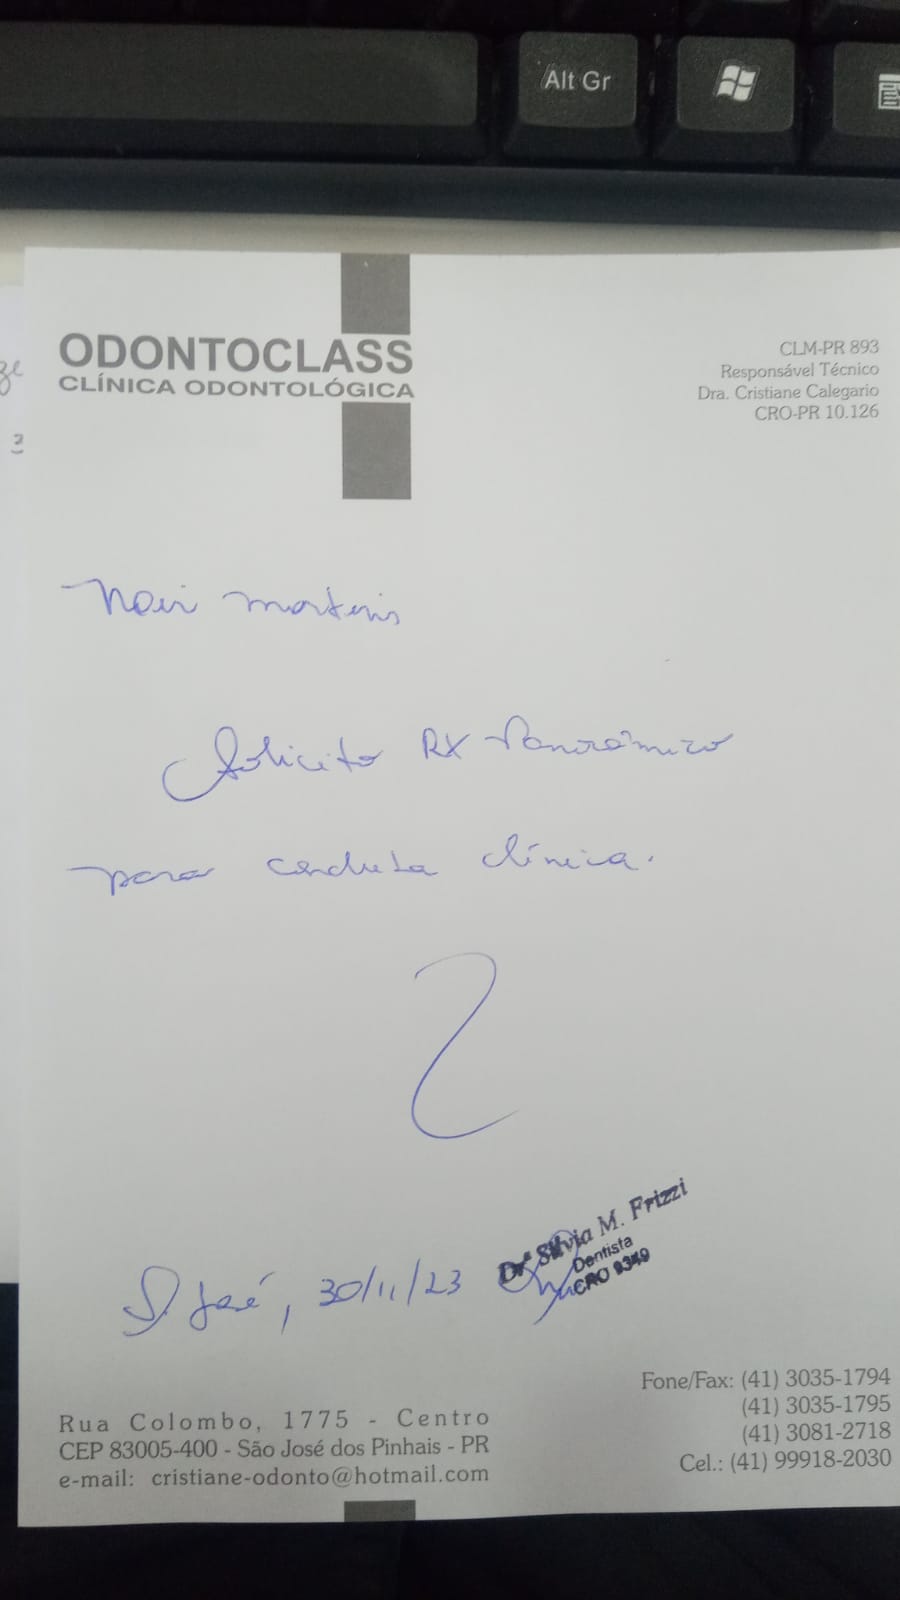 Alt Gr
ODONTOCLASS
CLÍNICA ODONTOLÓGICA
CLM-PR 893
Responsável Técnico
Dra. Cristiane Calegario
CRO-PR 10.126
Nair Martins
Solicito RX Panorâmico
para conduta clínica.
S. José, 30/11/23
Drª Silvia M. Frizzi
Dentista
CRO 9349
Rua Colombo, 1775 - Centro
CEP 83005-400 - São José dos Pinhais - PR
e-mail: cristiane-odonto@hotmail.com
Fone/Fax: (41) 3035-1794
(41) 3035-1795
(41) 3081-2718
Cel.: (41) 99918-2030